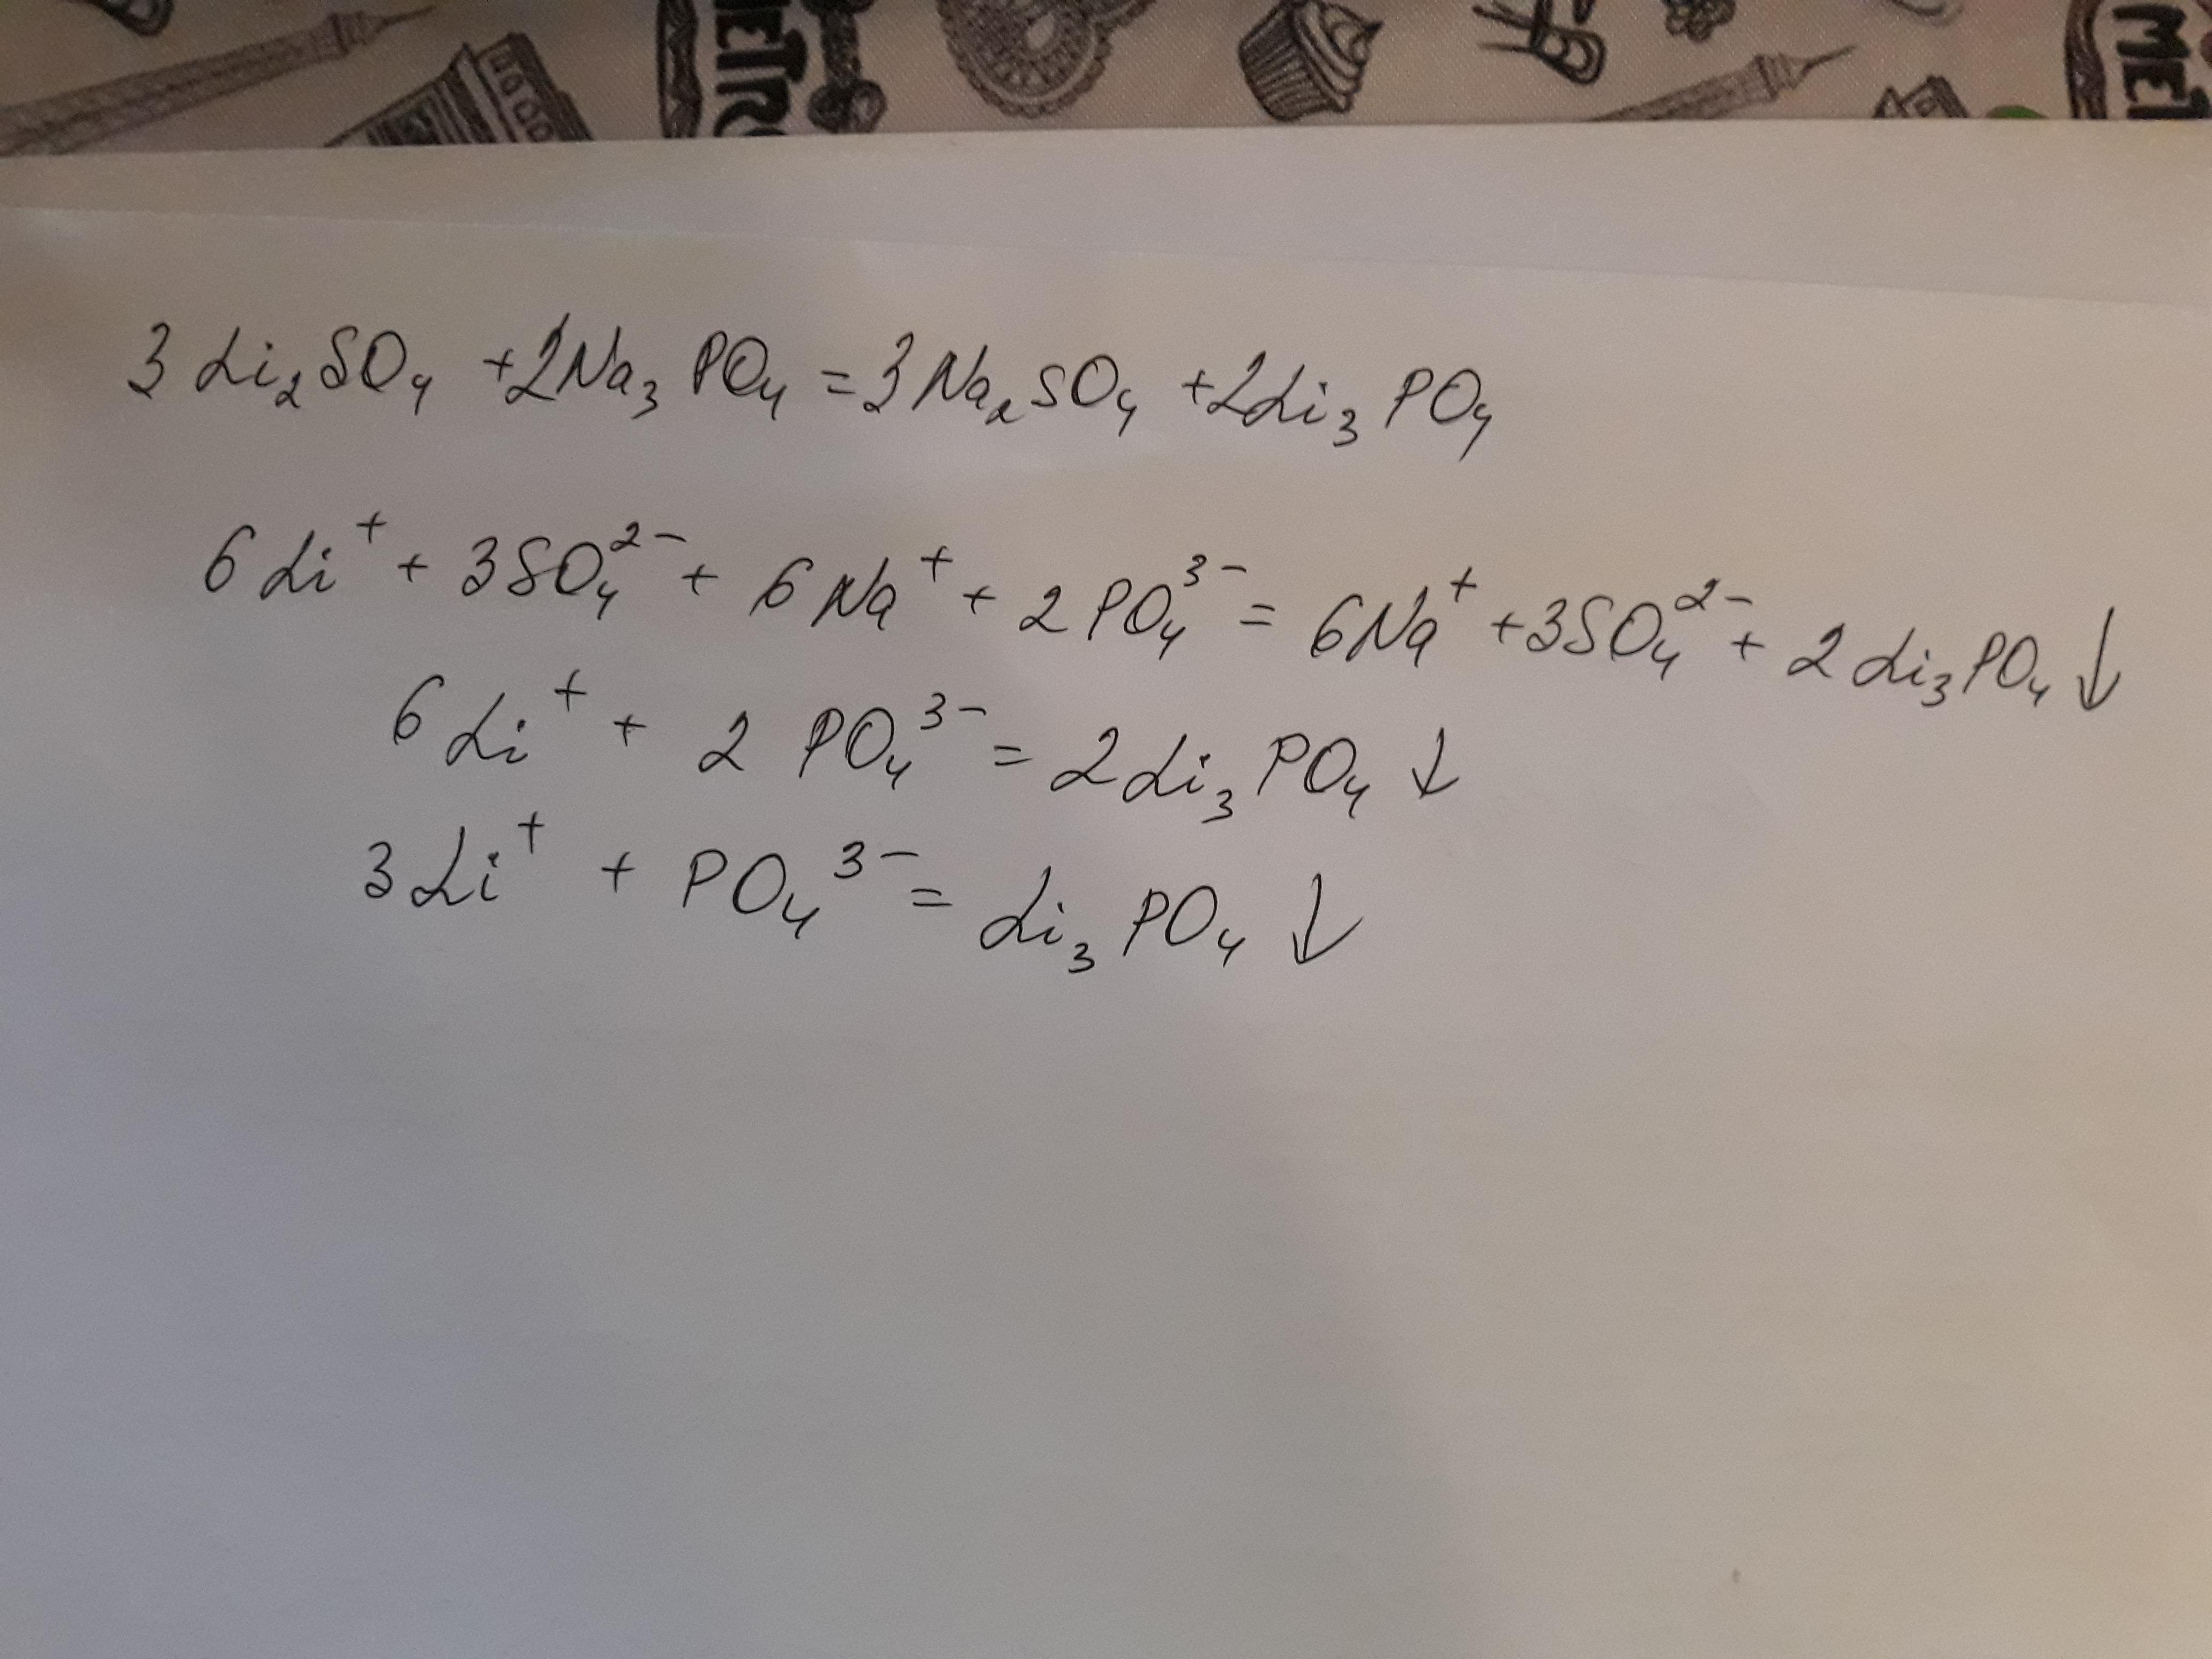 METR
MET
3Li₂SO₄ +2Na₃PO₄ =3Na₂SO₄ +2Li₃PO₄
6Li⁺ + 3SO₄²⁻ + 6Na⁺ + 2PO₄³⁻ = 6Na⁺ +3SO₄²⁻ + 2Li₃PO₄↓
6Li⁺ + 2PO₄³⁻ = 2Li₃PO₄↓
3Li⁺ + PO₄³⁻ = Li₃PO₄↓